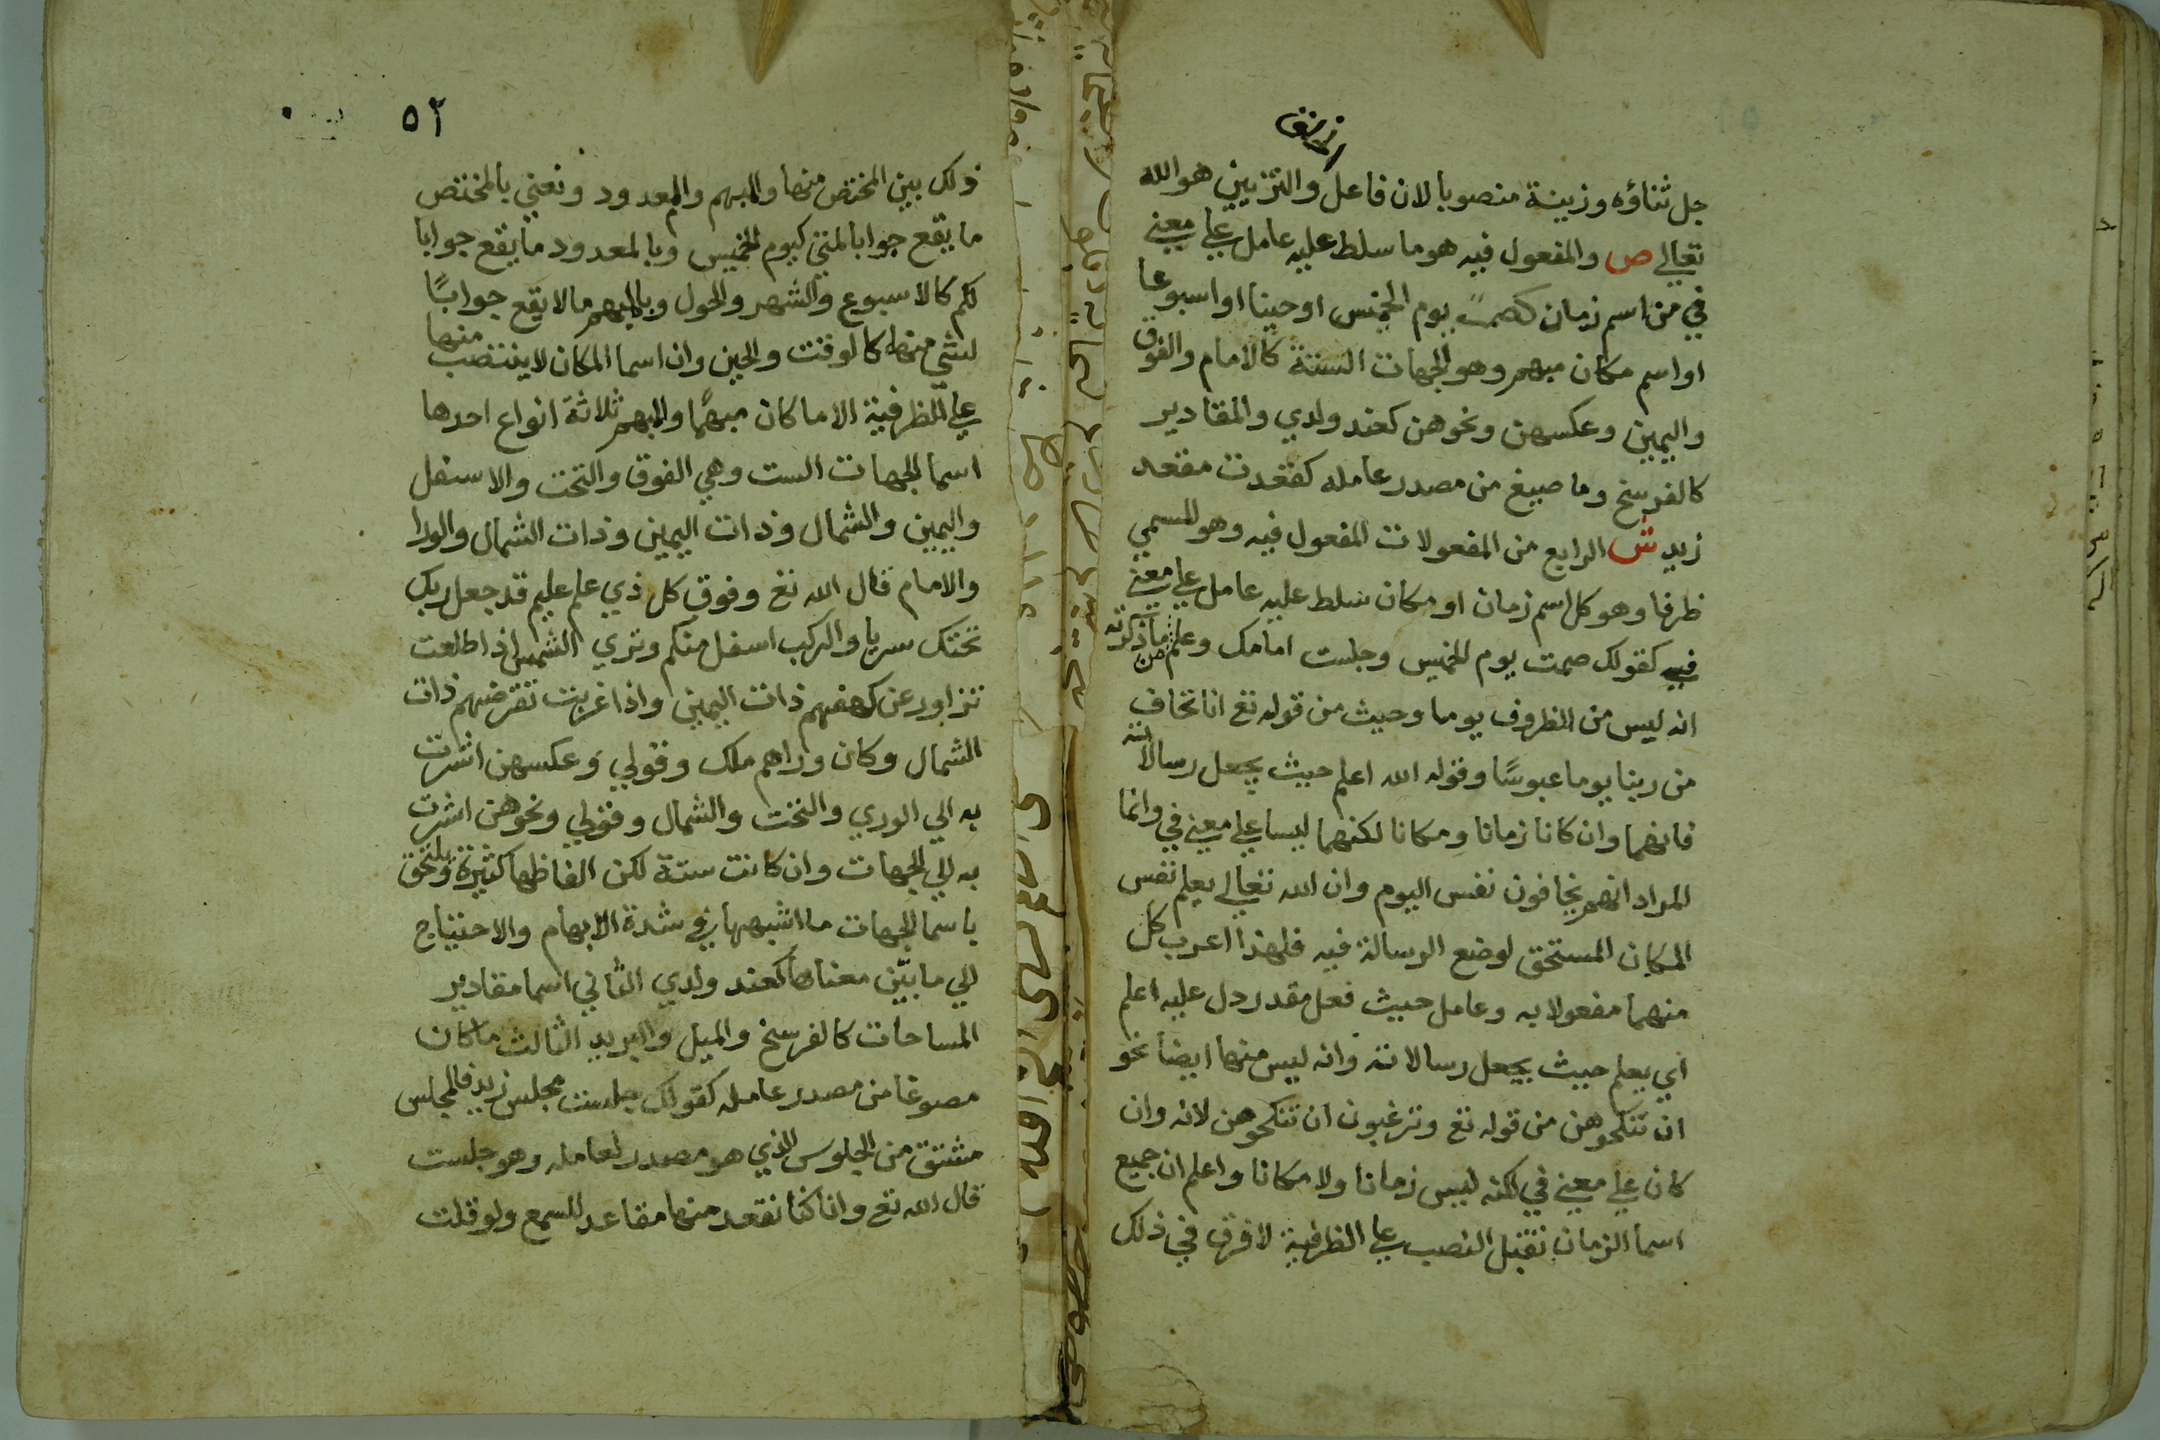 جل ثناؤه وزينة منصوبا لان فاعل والتزيين هو الله
تعالي ص والمفعول فيه هو ما سلط عليه عامل علي معني
في من اسم زمان كصمت يوم الخميس او حينا او اسبوعا
او اسم مكان مبهم وهو الجهات الستة كالامام والفوق
واليمين وعكسهن ونحوهن كعند ولدي والمقادير
كالفرسخ وما صيغ من مصدر عامله كقعدت مقعد
زيد ش الرابع من المفعولات المفعول فيه وهو المسمي
ظرفا وهو كل اسم زمان او مكان سلط عليه عامل علي معني
في كقولك صمت يوم الخميس وجلست امامك وعلم مما ذكرته من
انه ليس من الظروف يوما وحيث من قوله تع انا نخاف
من ربنا يوما عبوسًا وقوله الله اعلم حيث يجعل رسالاته
فانهما وان كانا زمانا ومكانا لكنهما ليسا علي معني في وانما
المراد انهم يخافون نفس اليوم وان الله تعالي يعلم نفس
المكان المستحق لوضع الرسالة فيه فلهذا اعرب كل
منهما مفعولا به وعامل حيث فعل مقدر دل عليه اعلم
اي يعلم حيث يجعل رسالاته وانه ليس منها ايضا نحو
ان تنكحوهن من قوله تع وترغبون ان تنكحوهن لانه وان
كان علي معني في لكنه ليس زمانا ولا مكانا واعلم ان جميع
اسما الزمان تقبل النصب علي الظرفية لا فرق في ذلك
٥٢
ذلك بين المختص منها والمبهم والمعدود ونعني بالمختص
ما يقع جوابا لمتي كيوم الخميس وبالمعدود ما يقع جوابا
لكم كالاسبوع والشهر والحول وبالمبهم ما لا يقع جوابًا
لشي منها كالوقت والحين وان اسما المكان لا ينتصب منها
علي الظرفية الا ما كان مبهما والمبهم ثلاثة انواع احدها
اسما الجهات الست وهي الفوق والتحت والاسفل
واليمين والشمال وذات اليمين وذات الشمال والورا
والامام قال الله تع وفوق كل ذي علم عليم قد جعل ربك
تحتك سريا والركب اسفل منكم وتري الشمس اذا طلعت
تزاور عن كهفهم ذات اليمين واذا غربت تقرضهم ذات
الشمال وكان وراهم ملك وقولي وعكسهن اشرت
به الي الوري والتحت والشمال وقولي ونحوهن اشرت
به الي الجهات وان كانت ستة لكن الفاظها كثيرة ويلتحق
باسما الجهات ما اشبهها في شدة الابهام والاحتياج
الي ما بيّن معناها كعند ولدي الثاني اسما مقادير
المساحات كالفرسخ والميل والبريد الثالث ما كان
مصوغا من مصدر عامله كقولك جلست مجلس زيد فالمجلس
مشتق من الجلوس الذي هو مصدر لعامله وهو جلست
قال الله تع وانا كنا نقعد منها مقاعد للسمع ولو قلت